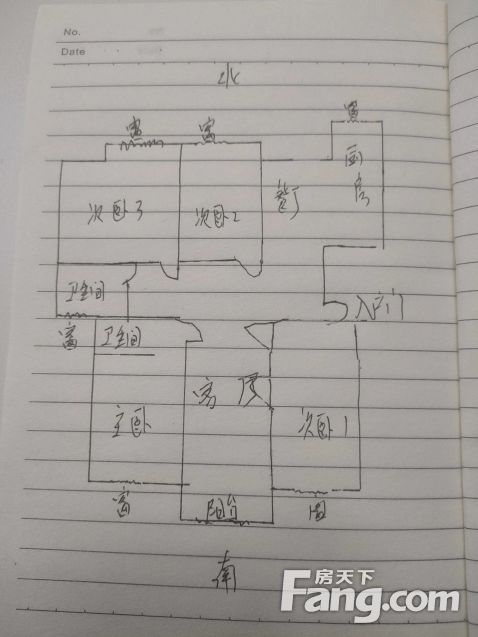 No.
Date
北
窗 窗 窗
厨房
餐厅
次卧3 次卧2
卫生间
入户门
窗 卫生间
客厅
主卧 次卧1
窗 阳台 窗
南
房天下
Fang.com